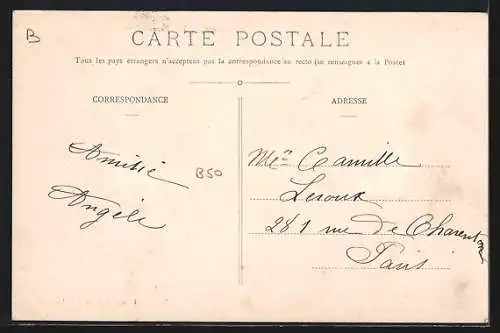 B
CARTE POSTALE
Tous les pays étrangers n'acceptent pas la correspondance au recto (se renseigner à la Poste)
CORRESPONDANCE
ADRESSE
Amitié
Angèle
B50
Mlle Camille
Leroux
281 rue de Charenton
Paris